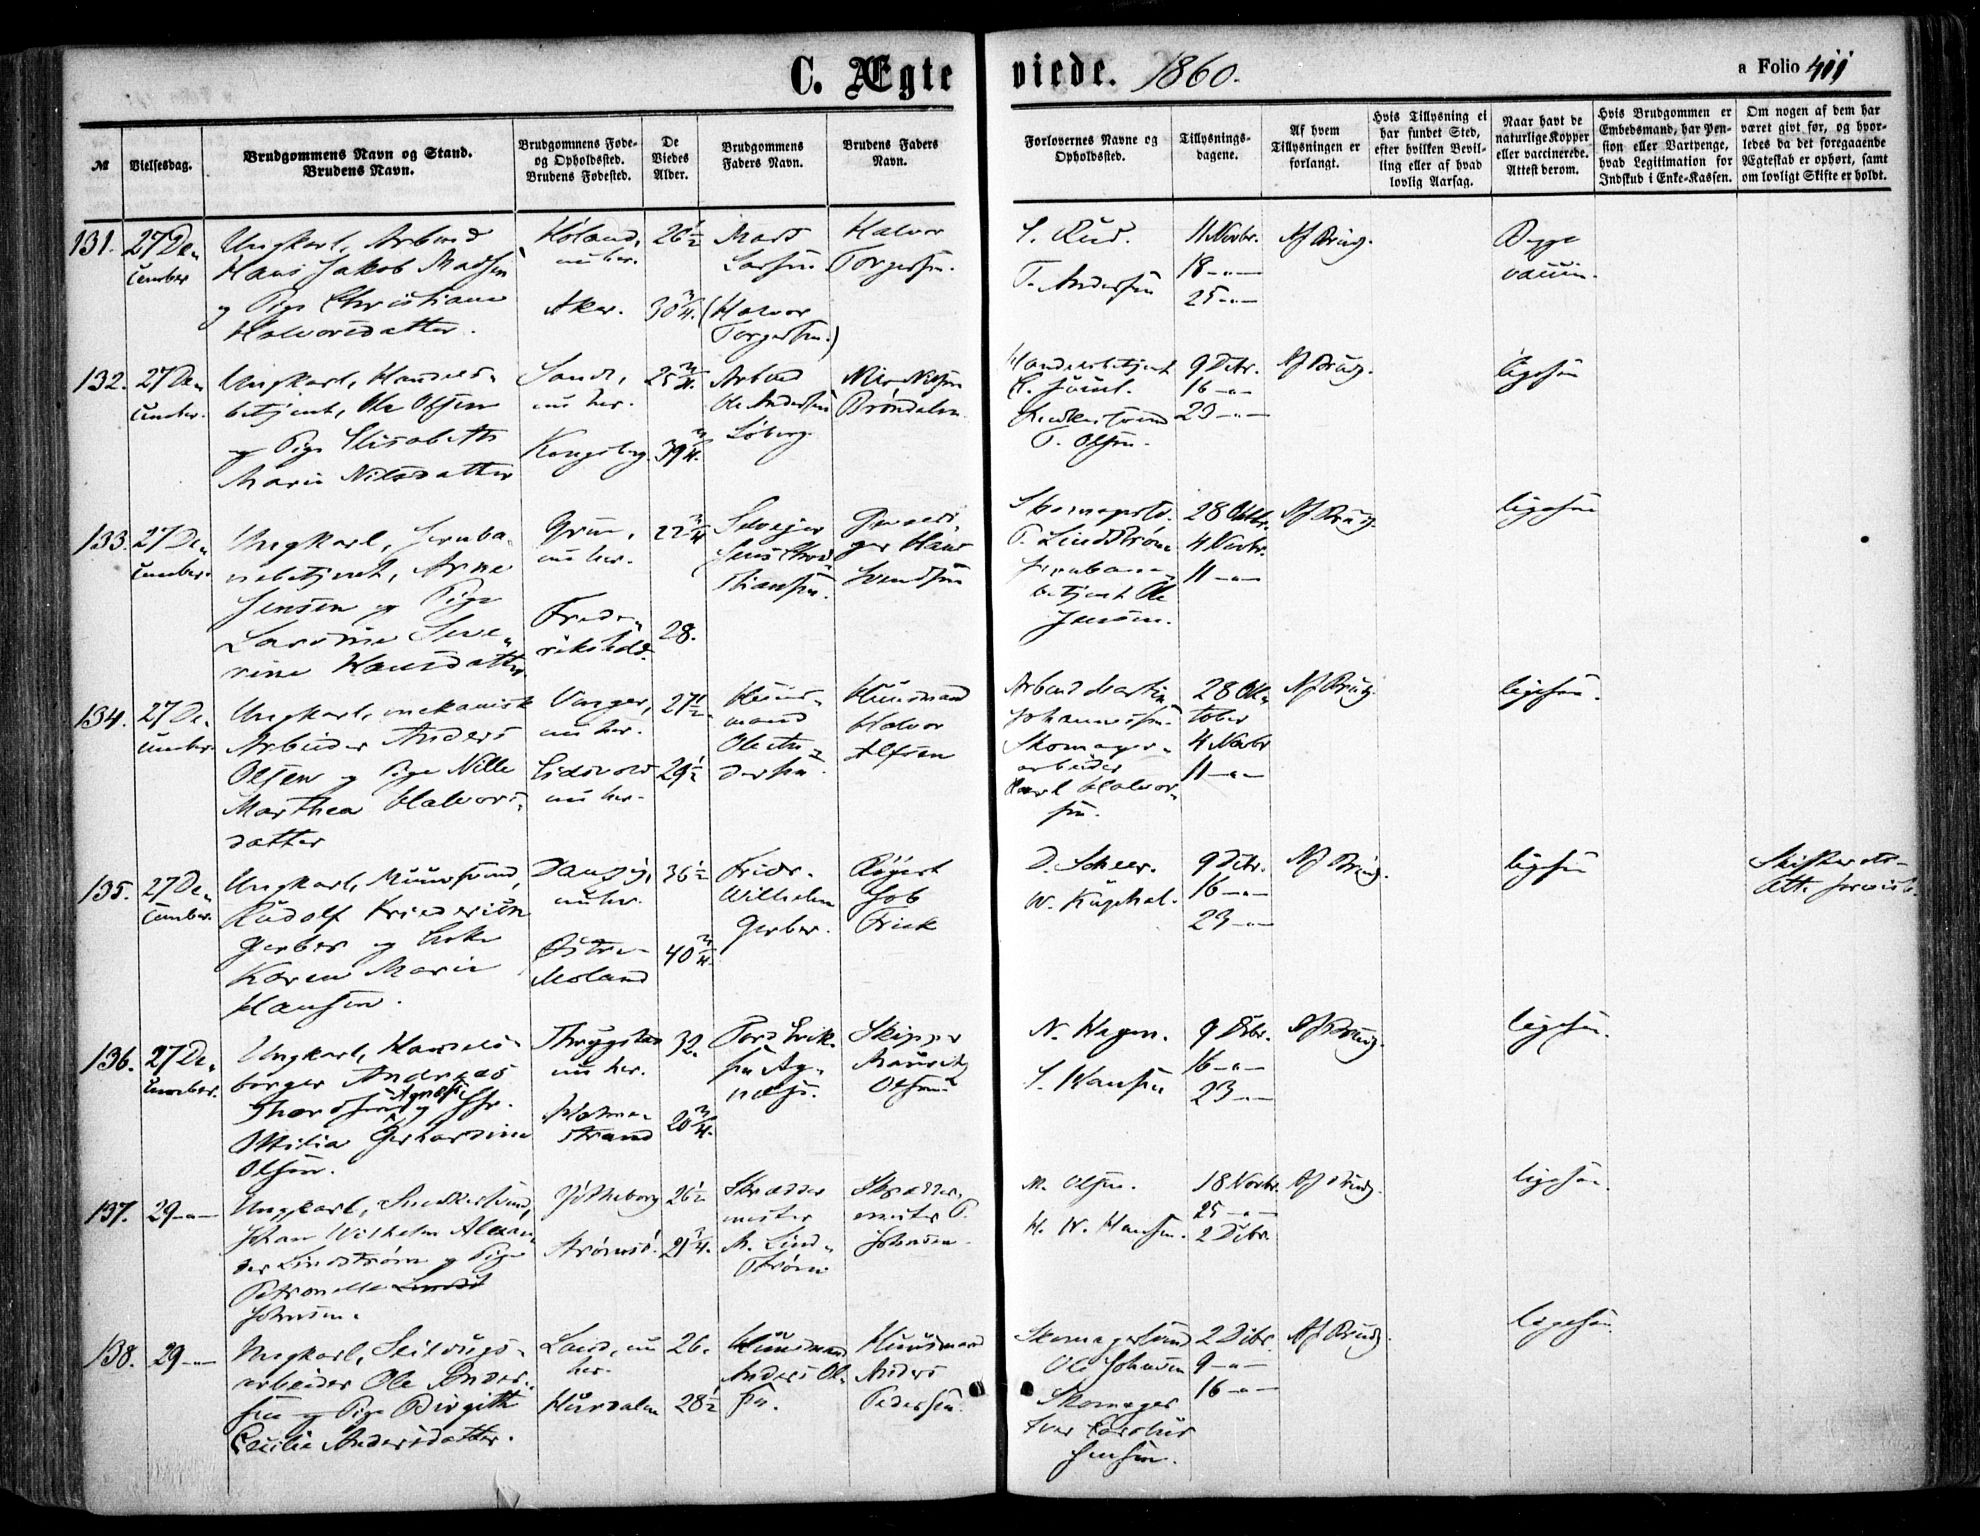 C. Ægteviede. 1860.
a Folio 411
№
Vielsesdag.
Brudgommens Navn og Stand.
Brudens Navn.
Brudgommens Føde-
og Opholdssted.
Brudens Fødested.
De
Viedes
Alder.
Brudgommens
Faders Navn.
Brudens Faders
Navn.
Forlovernes Navne og
Opholdssted.
Tillysnings-
dagene.
Af hvem
Tillysningen er
forlangt.
Hvis Tillysning ei
har fundet Sted,
efter hvilken Bevil-
ling eller af hvad
lovlig Aarsag.
Naar havt de
naturlige Kopper
eller vaccinerede.
Attest derom.
Hvis Brudgommen er
Embedsmand, har Pen-
sion eller Vartpenge,
hvad Legitimation for
Indskud i Enke-Kassen.
Om nogen af dem har
været gift før, og hvor-
ledes da det foregaaende
Ægteskab er ophørt, samt
om lovligt Skifte er holdt.
131.
27 De-
cember
Ungkarl, Arbmd
Hans Jakob Madsen
og Pige Christiane
Halvorsdatter.
Høland,
nu her.
Aker.
26 1/2
30 3/4.
Mads
Larsen
(Halvor
Torgersen.)
Halvor
Torgersen.
S. Rud.
T. Andersen
11 Novbr.
18 -"-
25 -"-
Af Brudg.
Begge
vaccin.
132.
27 De-
cember.
Ungkarl, Handels-
betjent, Ole Olsen
og Pige Elisabeth
Marie Nilsdatter
Sande,
nu her.
Kongsberg.
25 3/4.
39 3/4.
Arbmd
Ole Andersen
Løberg
Nils Nilsen
Brøndalen.
Handelsbetjent
T. Olsen.
9 Debr.
16 -"-
23 -"-
Af Brudg.
ligesaa
133.
27 De-
cember.
Ungkarl, Jernba-
nebetjent, Arne
Jensen og Pige
Larsine Seve-
rine Hansdatter.
Grue,
nu her.
Frede-
rikshald.
22 3/4
28.
Selveier
Jens Chris-
tiansen.
Gaardi-
ger Hans
Svendsen
P. Lindstrøm
Jernbane-
betjent Ole
Jensen.
28 Octbr.
4 Novbr.
11 -"-
Af Brudg.
ligesaa
134.
27 De-
cember.
Ungkarl, mekanisk
Arbeider Anders
Olsen og Pige Nille
Marthea Halvors-
datter
Vinger,
nu her.
Eidsvold
nu her.
27 1/2.
29 1/2
Huus-
mand
Ole An-
dersen.
Huusmand
Halvor
Alfsen
Arbmd Martin
Johannessen
Skomager-
arbeider
Carl Halvor-
sen.
28 Ok-
tober
4 Novbr
11 -"-
Af Brudg.
ligesaa.
135.
27 De-
cember.
Ungkarl, Muursvend,
Rudolf Friederich
Gerber og Enke
Karen Marie
Hansen.
Danzig,
nu her.
Østre-
Moland
36 1/2
40 3/4.
Fridr.
Wilhelm
Gerber.
Job
Frick
D. Scheer.
9 Debr.
16 -"-
23 -"-
Af Brudg.
ligesaa
Skifterets-
Att. forevist.
136.
27 De-
cember.
Ungkarl, Handels-
borger Andreas
Thordsen Agnæss og Jfr.
Ottilia Gerhardine
Olsen.
Thrygstad
nu her.
Holme-
strand
32.
20 3/4.
Tord Erik-
sen Ag-
næss.
Skipper
Mauritz
Olsen.
N. Hagen.
S. Hansen
9 Debr.
16 -"-
23 -"-
Af Brudg.
ligesaa.
137.
29 -"-
Ungkarl, Snedkersvend,
Johan Wilhelm Alexan-
der Lindstrøm og Pige
Petronelle
Johnsen.
Götheborg
Strømsö.
26 1/2
21 3/4.
Skrædder
mester
A. Lind-
strøm
Skrædder-
mester P.
Johnsen.
M. Olsen.
H. W. Hansen.
18 Novbr.
25 -"-
2 Debr.
Af Brudg.
ligesaa.
138.
29 -"-
Ungkarl, Seildugs-
arbeider Ole Ander-
sen og Pige Birgithe
Cecilie Andersdatter.
Land, nu
her.
Hurdalen
26.
28 1/2
Huusmand
Anders Ol-
sen.
Huusmand
Anders
Pedersen.
Skomagersvend
Ole Johnsen
Skomager
Iver Carelius
Jensen.
2 Debr.
9 -"-
16 -"-
Af Brudg.
ligesaa.